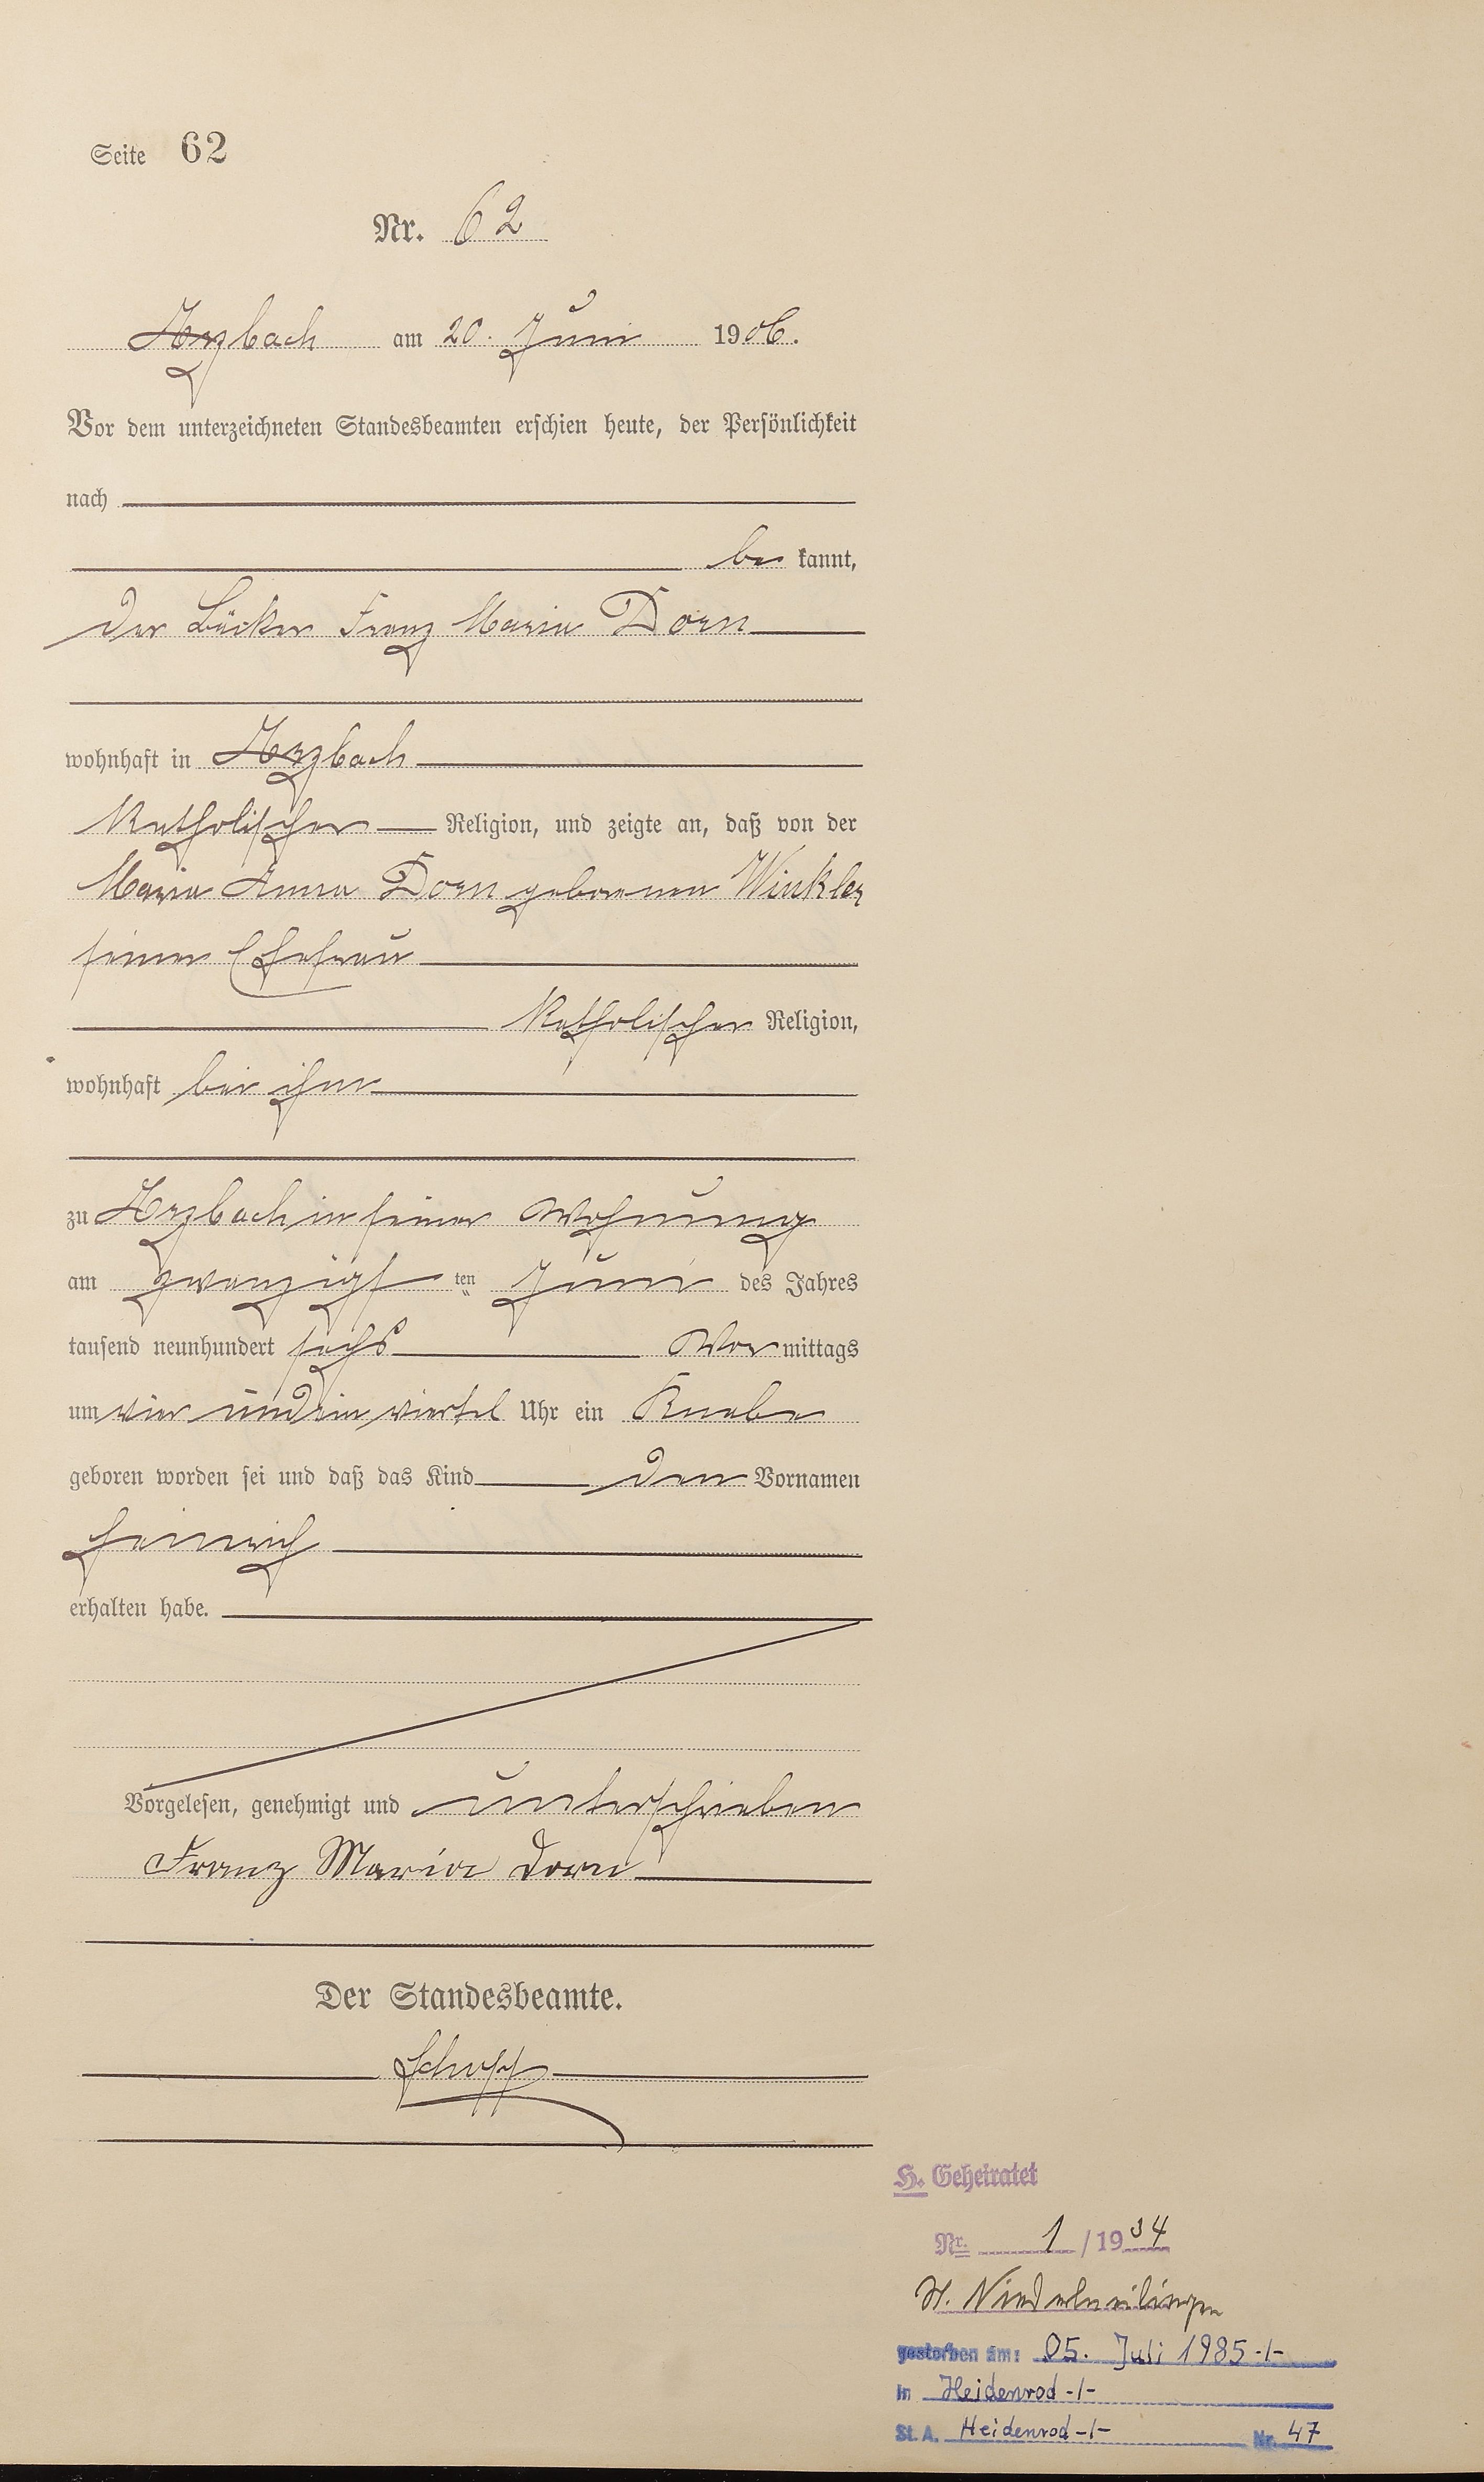 Seite 62
Nr. 62
Arzbach am 20. Juni 1906.
Vor dem unterzeichneten Standesbeamten erschien heute, der Persönlichkeit
nach
be kannt,
der Bäcker Franz Maria Dorn
wohnhaft in Arzbach
katholischer Religion, und zeigte an, daß von der
Maria Anna Dorn geborenen Winkler
seiner Ehefrau
katholischer Religion,
wohnhaft bei ihm
zu Arzbach in seiner Wohnung
am zwanzigsten Juni des Jahres
tausend neunhundert sechs Vormittags
um vier und ein viertel Uhr ein Knabe
geboren worden sei und daß das Kind den Vornamen
Heinrich
erhalten habe.
Vorgelesen, genehmigt und unterschrieben
Franz Maria Dorn
Der Standesbeamte.
H. Geheiratet
Nr. 1 / 1934
St. Niedermeilingen
gestorben am: 05. Juli 1985 -/-
in Heidenrod -/-
St. A. Heidenrod -/- Nr. 47